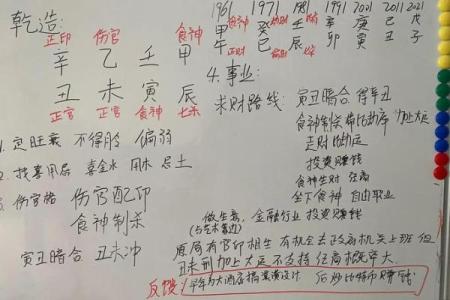 乾造:
正印 伤官 食神
辛 乙 壬 甲
丑 未 寅 辰
正官 正官 食神 七杀
1. 定旺衰 不得令 偏弱
2. 找喜用忌 喜金水 用水 忌土
伤官格 伤官配印
食神制杀
寅丑暗合 丑未冲
1961 1971 1981 1991 2001 2011 2021
甲 癸 壬 辛 庚 己 戊
午 巳 辰 卯 寅 丑 子
4. 事业:
求财路线: 寅丑暗合 得辛丑
食神制杀 加上大运
走财
投资赚钱
食神生财 任高
坐下食神 自由职业
做生意, 金融行业 投资赚钱
原局有官印相生 有机会去政府机关上班 但
丑未刑加上大运不支持 任高概率大
反馈: 早年与大酒店搞装潢设计 后炒比特币赚钱